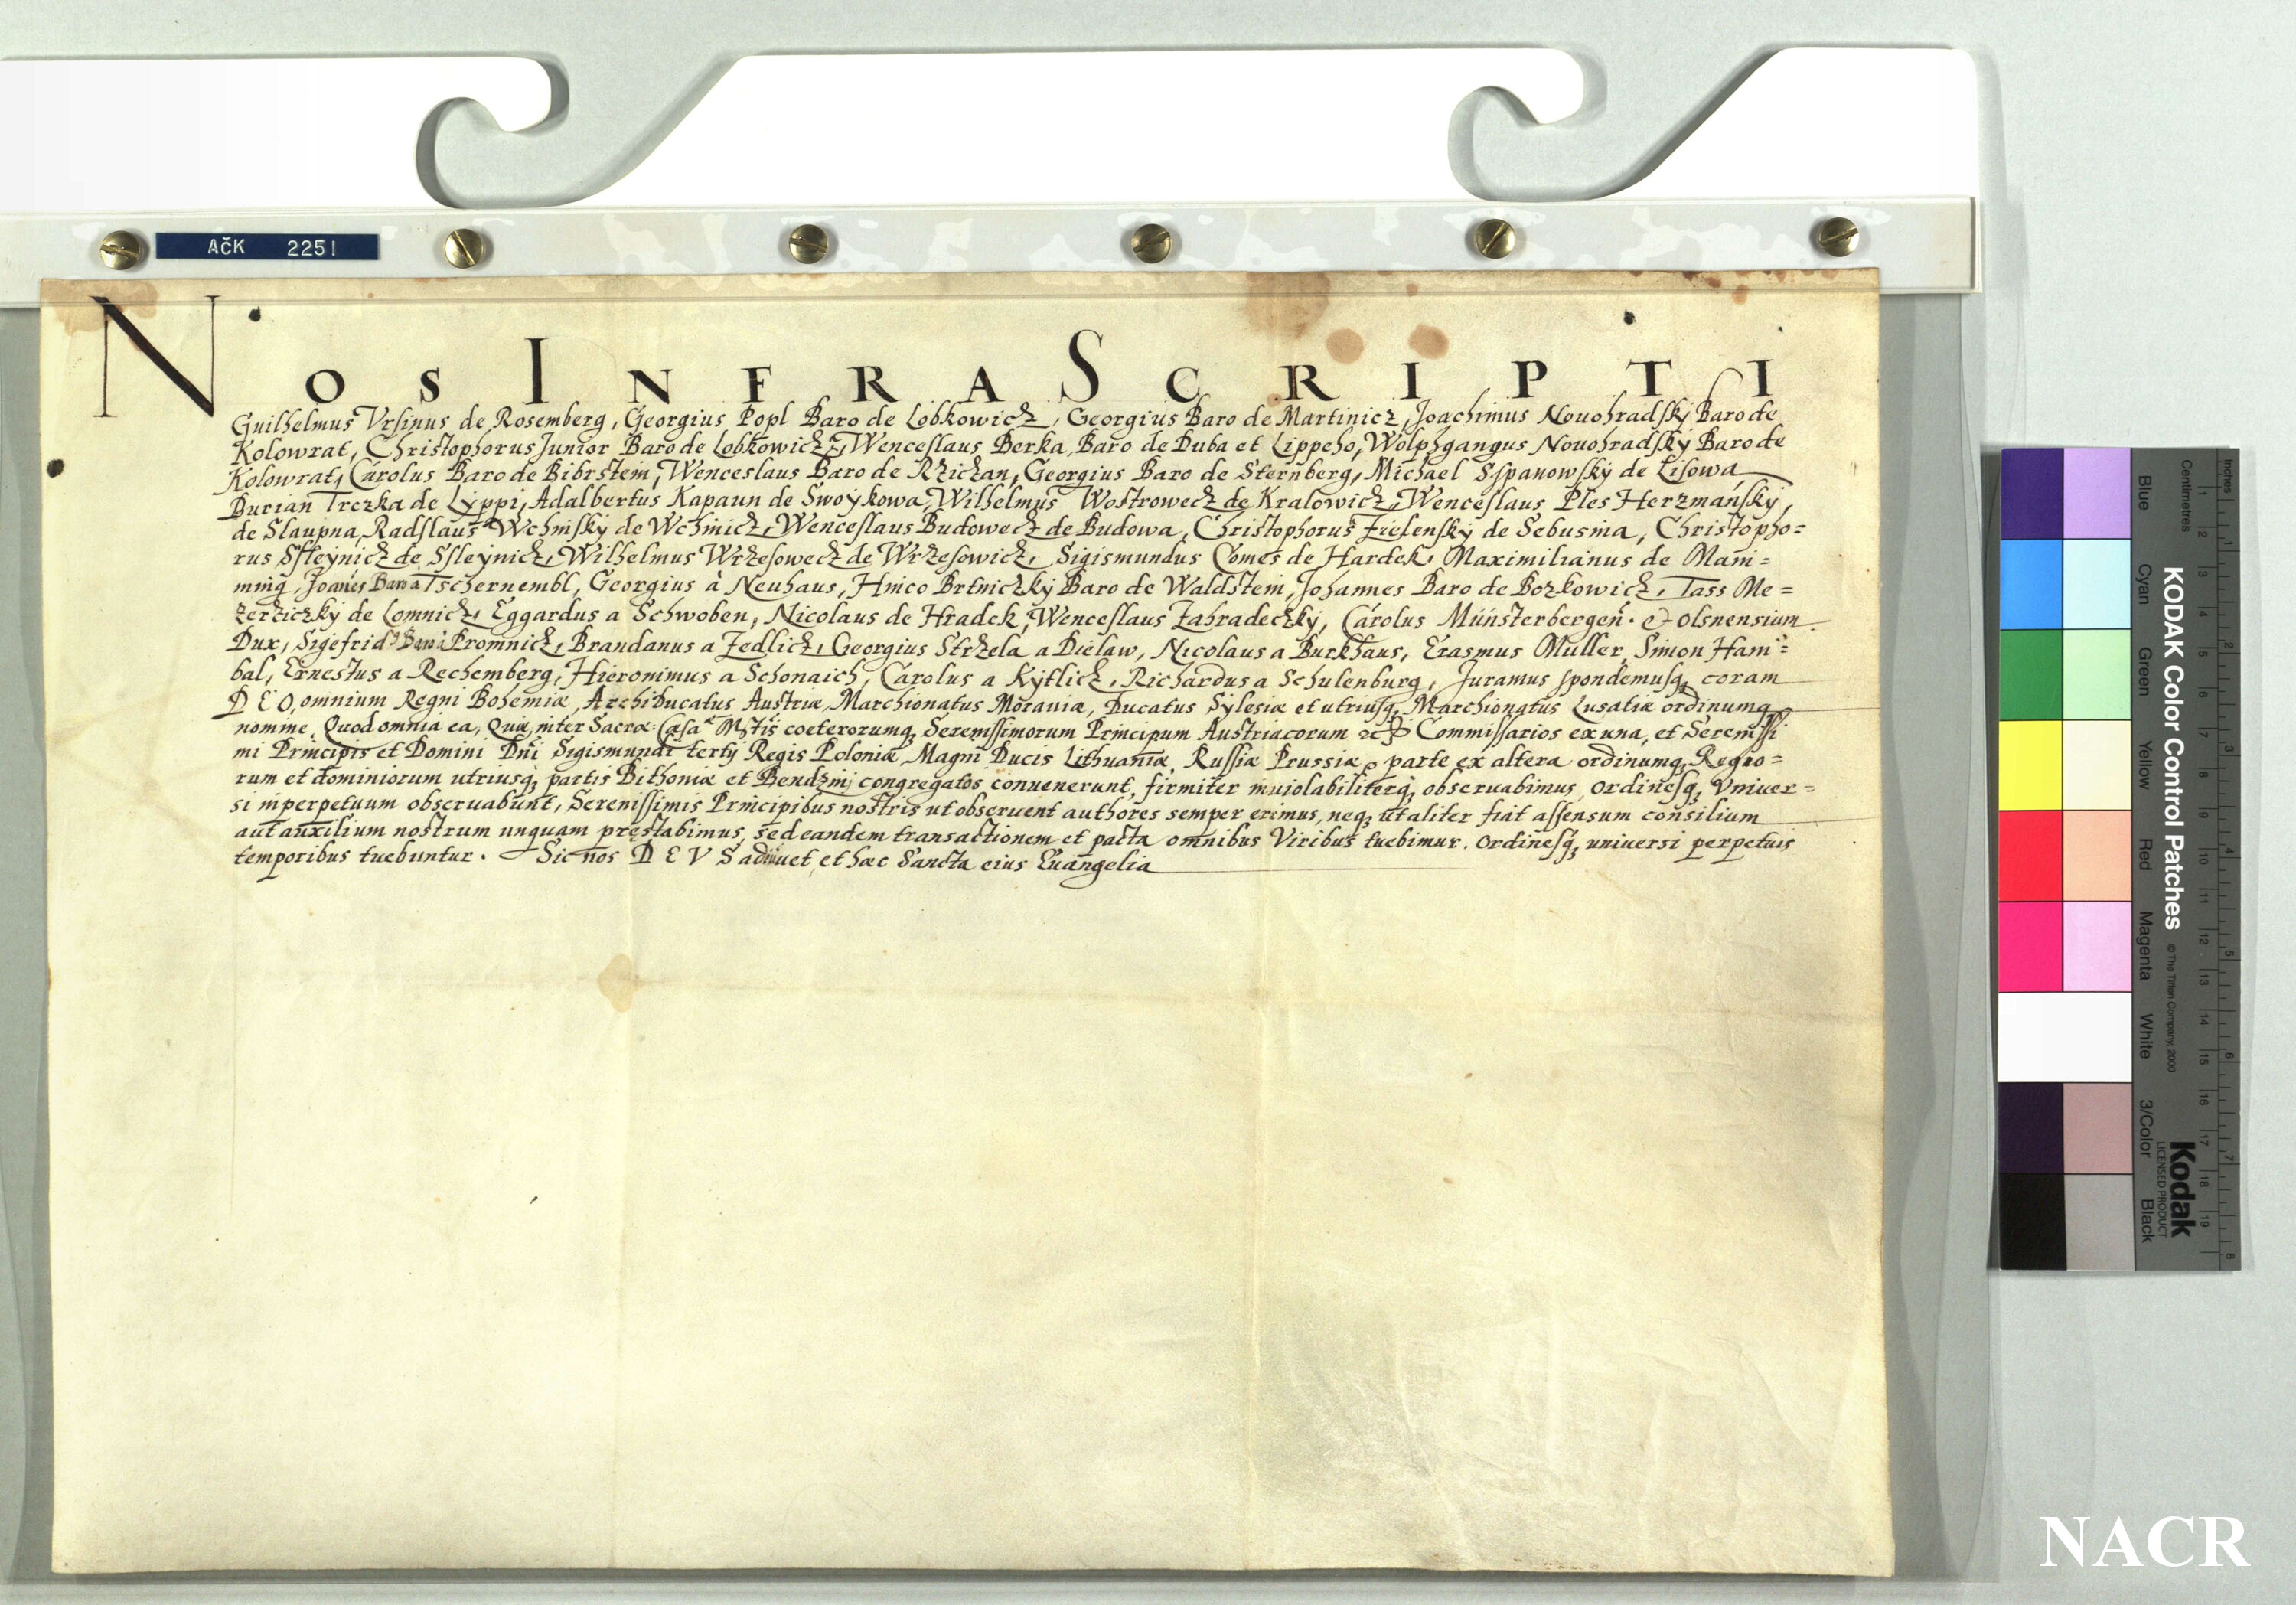 AčK 2251
NOS INFRA SCRIPTI
Guilhelmus Vrsinus de Rosemberg, Georgius Popl Baro de Lobkowicz, Georgius Baro de Martinicz, Joachimus Nouohradsky Baro de
Kolowrat, Christophorus Junior Baro de Lobkowicz, Wenceslaus Berka, Baro de Duba et Lippeho, Wolphgangus Nouohradsky Baro de
Kolowrat, Carolus Baro de Bibrstein, Wenceslaus Baro de Rziczan, Georgius Baro de Sternberg, Michael Sspanowsky de Lisowa
Burian Trczka de Lyppi, Adalbertus Kapaun de Swoykowa, Wilhelmus Wostrowecz de Kralowicz, Wenceslaus Ples Herzmansky,
de Slaupna, Radslaus Wchinsky de Wchinicz, Wenceslaus Budowecz de Budowa, Christophorus Zielensky de Sebusina, Christopho=
rus Ssleynicz de Ssleynicz, Wilhelmus Wrzesowecz de Wrzesowicz, Sigismundus Comes de Hardek, Maximilianus de Mam=
ming, Joanes Baro a Tschernembl, Georgius à Neuhaus, Hinco Brtniczky Baro de Waldstein, Johannes Baro de Bozkowicz, Tass Me=
zerziczky de Lomnicz, Eggardus a Schwoben, Nicolaus de Hradek, Wenceslaus Zahradeczky, Carolus Münsterbergen. & Olsnensium
Dux, Sigefrid9 Baro a Promnicz, Brandanus a Zedlicz, Georgius Strzela a Dielaw, Nicolaus a Burkhaus, Erasmus Muller, Simon Hani=
bal, Ernestus a Rechemberg, Hieronimus a Schonaich, Carolus a Kytlicz, Richardus a Schulenburg, Juramus spondemusq coram
DEO, omnium Regni Bohemiæ, ArchiDucatus Austriæ, Marchionatus Morauiæ, Ducatus Sylesiæ et utriusq Marchionatus Lusatiæ ordinumq
nomine, Quod omnia ea, Quæ inter Sacræ: Cæsæ Mtis coeterorumq Serenissimorum Principum Austriacorum Commissarios ex una, et Serenissi
mi Principis et Domini Dni Sigismundi tertij Regis Poloniæ, Magni Ducis Lithuaniæ, Russiæ Prussiæ parte ex altera ordinumq Regno=
rum et dominiorum utriusq partis Bithoniæ et Bendzini congregatos conuenerunt, firmiter inuiolabiliterq obseruabimus, Ordinesq Vniuer=
si inperpetuum obseruabunt, Serenissimis Principibus nostris ut obseruent authores semper erimus, neq ut aliter fiat assensum consilium
aut auxilium nostrum unquam præstabimus, sed eandem transactionem et pacta omnibus Viribus tuebimur. Ordinesq uniuersi perpetuis
temporibus tuebuntur. Sic nos DEVS adiuuet, et hæc Sancta eius Euangelia
KODAK Color Control Patches
©The Tiffen Company, 2000
Kodak
LICENSED PRODUCT
Inches
Centimetres
Blue
Cyan
Green
Yellow
Red
Magenta
White
3/Color
Black
NACR